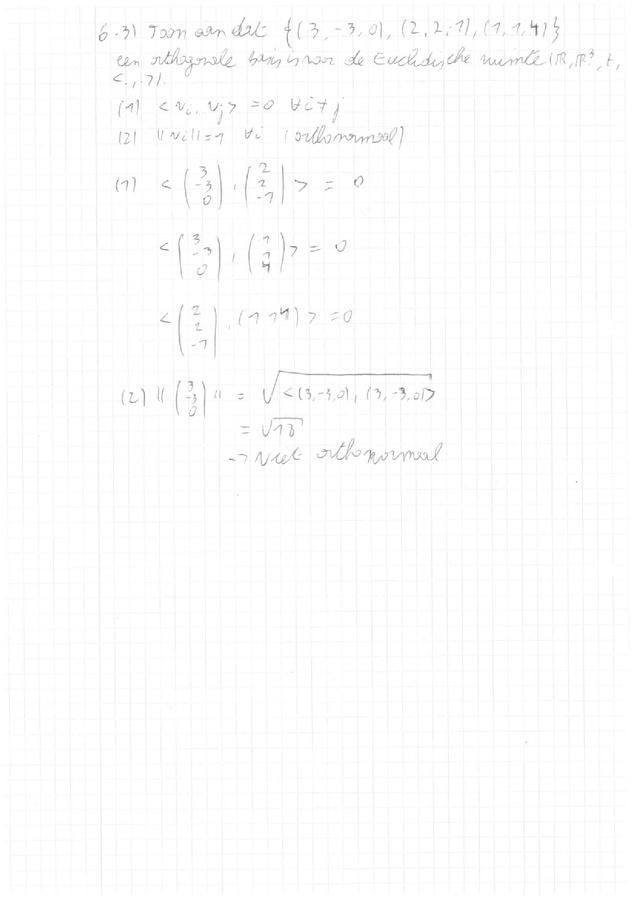 6.3) Toon aan dat {(3, -3, 0), (2, 2, -1), (1, 1, 4)}
een orthogonale basis is voor de Euclidische ruimte (ℝ, ℝ³, +,
<.,.>).
(1) < vi, vj > = 0 ∀i ≠ j
(2) ||vi|| = 1 ∀i (orthonormaal)
(1) < (3 -3 0), (2 2 -1) > = 0
< (3 -3 0), (1 1 4) > = 0
< (2 2 -1), (1 1 4) > = 0
(2) || (3 -3 0) || = √<(3,-3,0), (3,-3,0)>
= √18
→ Niet orthonormaal